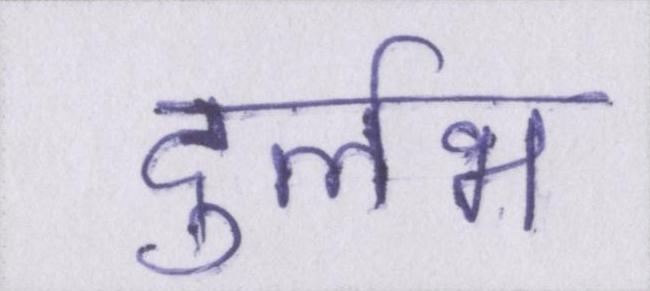 दुर्लभ